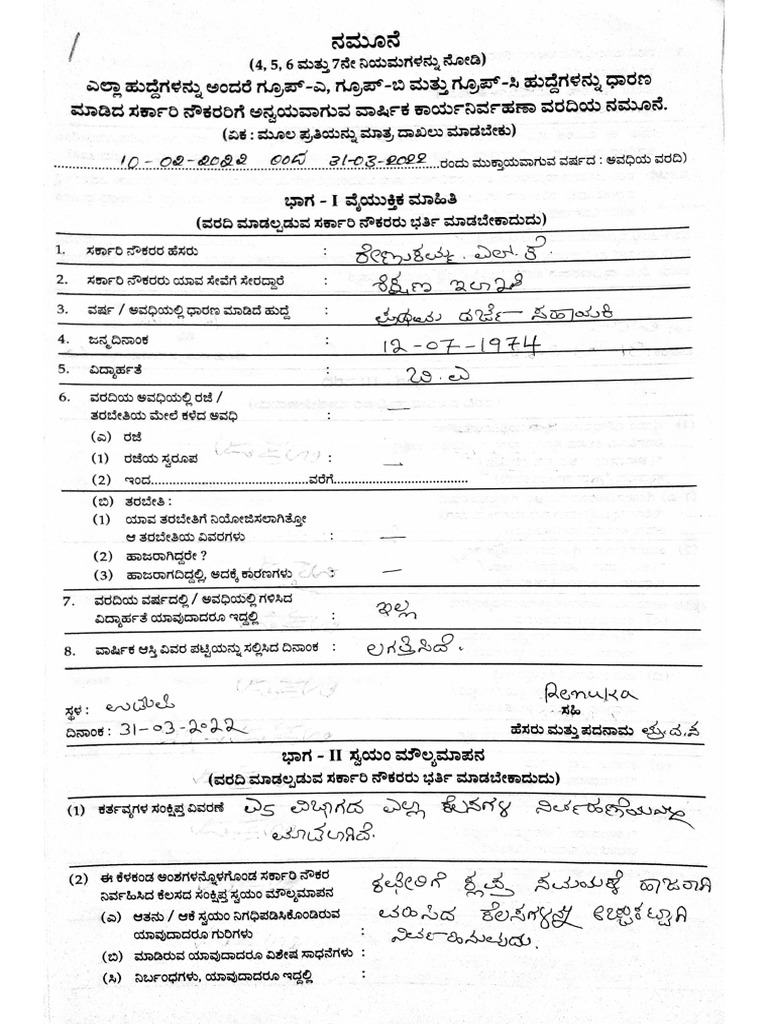 ನಮೂನೆ
(4, 5, 6 ಮತ್ತು 7ನೇ ನಿಯಮಗಳನ್ನು ನೋಡಿ)
ಎಲ್ಲಾ ಹುದ್ದೆಗಳನ್ನು ಅಂದರೆ ಗ್ರೂಪ್-ಎ, ಗ್ರೂಪ್-ಬಿ ಮತ್ತು ಗ್ರೂಪ್-ಸಿ ಹುದ್ದೆಗಳನ್ನು ಧಾರಣ
ಮಾಡಿದ ಸರ್ಕಾರಿ ನೌಕರರಿಗೆ ಅನ್ವಯವಾಗುವ ವಾರ್ಷಿಕ ಕಾರ್ಯನಿರ್ವಹಣಾ ವರದಿಯ ನಮೂನೆ.
(ಏಕ : ಮೂಲ ಪ್ರತಿಯನ್ನು ಮಾತ್ರ ದಾಖಲು ಮಾಡಬೇಕು)
10-02-2022 ಇಂದ 31-03-2022 ರಂದು ಮುಕ್ತಾಯವಾಗುವ ವರ್ಷದ : ಅವಧಿಯ ವರದಿ)
ಭಾಗ - I ವೈಯುಕ್ತಿಕ ಮಾಹಿತಿ
(ವರದಿ ಮಾಡಲ್ಪಡುವ ಸರ್ಕಾರಿ ನೌಕರರು ಭರ್ತಿ ಮಾಡಬೇಕಾದುದು)
1. ಸರ್ಕಾರಿ ನೌಕರರ ಹೆಸರು : ರೇಣುಕಯ್ಯ. ಎಲ್. ಕೆ.
2. ಸರ್ಕಾರಿ ನೌಕರರು ಯಾವ ಸೇವೆಗೆ ಸೇರದ್ದಾರೆ : ಶಿಕ್ಷಣ ಇಲಾಖೆ
3. ವರ್ಷ / ಅವಧಿಯಲ್ಲಿ ಧಾರಣ ಮಾಡಿದೆ ಹುದ್ದೆ : ಪ್ರಥಮ ದರ್ಜೆ ಸಹಾಯಕಿ
4. ಜನ್ಮದಿನಾಂಕ : 12-07-1974
5. ವಿದ್ಯಾರ್ಹತೆ : ಬಿ.ಎ
6. ವರದಿಯ ಅವಧಿಯಲ್ಲಿ ರಜೆ /
ತರಬೇತಿಯ ಮೇಲೆ ಕಳೆದ ಅವಧಿ : —
(ಎ) ರಜೆ
(1) ರಜೆಯ ಸ್ವರೂಪ : —
(2) ಇಂದ....................ವರೆಗೆ....................
(ಬಿ) ತರಬೇತಿ :
(1) ಯಾವ ತರಬೇತಿಗೆ ನಿಯೋಜಿಸಲಾಗಿತ್ತೋ
ಆ ತರಬೇತಿಯ ವಿವರಗಳು : —
(2) ಹಾಜರಾಗಿದ್ದರೇ ?
(3) ಹಾಜರಾಗದಿದ್ದಲ್ಲಿ, ಅದಕ್ಕೆ ಕಾರಣಗಳು : —
7. ವರದಿಯ ವರ್ಷದಲ್ಲಿ / ಅವಧಿಯಲ್ಲಿ ಗಳಿಸಿದ
ವಿದ್ಯಾರ್ಹತೆ ಯಾವುದಾದರೂ ಇದ್ದಲ್ಲಿ : ಇಲ್ಲ
8. ವಾರ್ಷಿಕ ಆಸ್ತಿ ವಿವರ ಪಟ್ಟಿಯನ್ನು ಸಲ್ಲಿಸಿದ ದಿನಾಂಕ : ಲಗತ್ತಿಸಿದೆ.
Renuka
ಸ್ಥಳ : ಸಹಿ
ದಿನಾಂಕ : 31-03-2022 ಹೆಸರು ಮತ್ತು ಪದನಾಮ ಪ್ರ.ದ.ಸ
ಭಾಗ - II ಸ್ವಯಂ ಮೌಲ್ಯಮಾಪನ
(ವರದಿ ಮಾಡಲ್ಪಡುವ ಸರ್ಕಾರಿ ನೌಕರರು ಭರ್ತಿ ಮಾಡಬೇಕಾದುದು)
(1) ಕರ್ತವ್ಯಗಳ ಸಂಕ್ಷಿಪ್ತ ವಿವರಣೆ ವಿಭಾಗದ ಎಲ್ಲಾ ಕೆಲಸಗಳ ನಿರ್ವಹಣೆಯನ್ನು
ಮಾಡಲಾಗಿದೆ.
(2) ಈ ಕೆಳಕಂಡ ಅಂಶಗಳನ್ನೊಳಗೊಂಡ ಸರ್ಕಾರಿ ನೌಕರ ಕಛೇರಿಗೆ ಕ್ಲಪ್ತ ಸಮಯಕ್ಕೆ ಹಾಜರಾಗಿ
ನಿರ್ವಹಿಸಿದ ಕೆಲಸದ ಸಂಕ್ಷಿಪ್ತ ಸ್ವಯಂ ಮೌಲ್ಯಮಾಪನ
(ಎ) ಆತನು / ಆಕೆ ಸ್ವಯಂ ನಿಗಧಿಪಡಿಸಿಕೊಂಡಿರುವ ವಹಿಸಿದ ಕೆಲಸಗಳನ್ನು ಅಚ್ಚುಕಟ್ಟಾಗಿ
ಯಾವುದಾದರೂ ಗುರಿಗಳು : ನಿರ್ವಹಿಸುವುದು.
(ಬಿ) ಮಾಡಿರುವ ಯಾವುದಾದರೂ ವಿಶೇಷ ಸಾಧನೆಗಳು :
(ಸಿ) ನಿರ್ಬಂಧಗಳು, ಯಾವುದಾದರೂ ಇದ್ದಲ್ಲಿ :